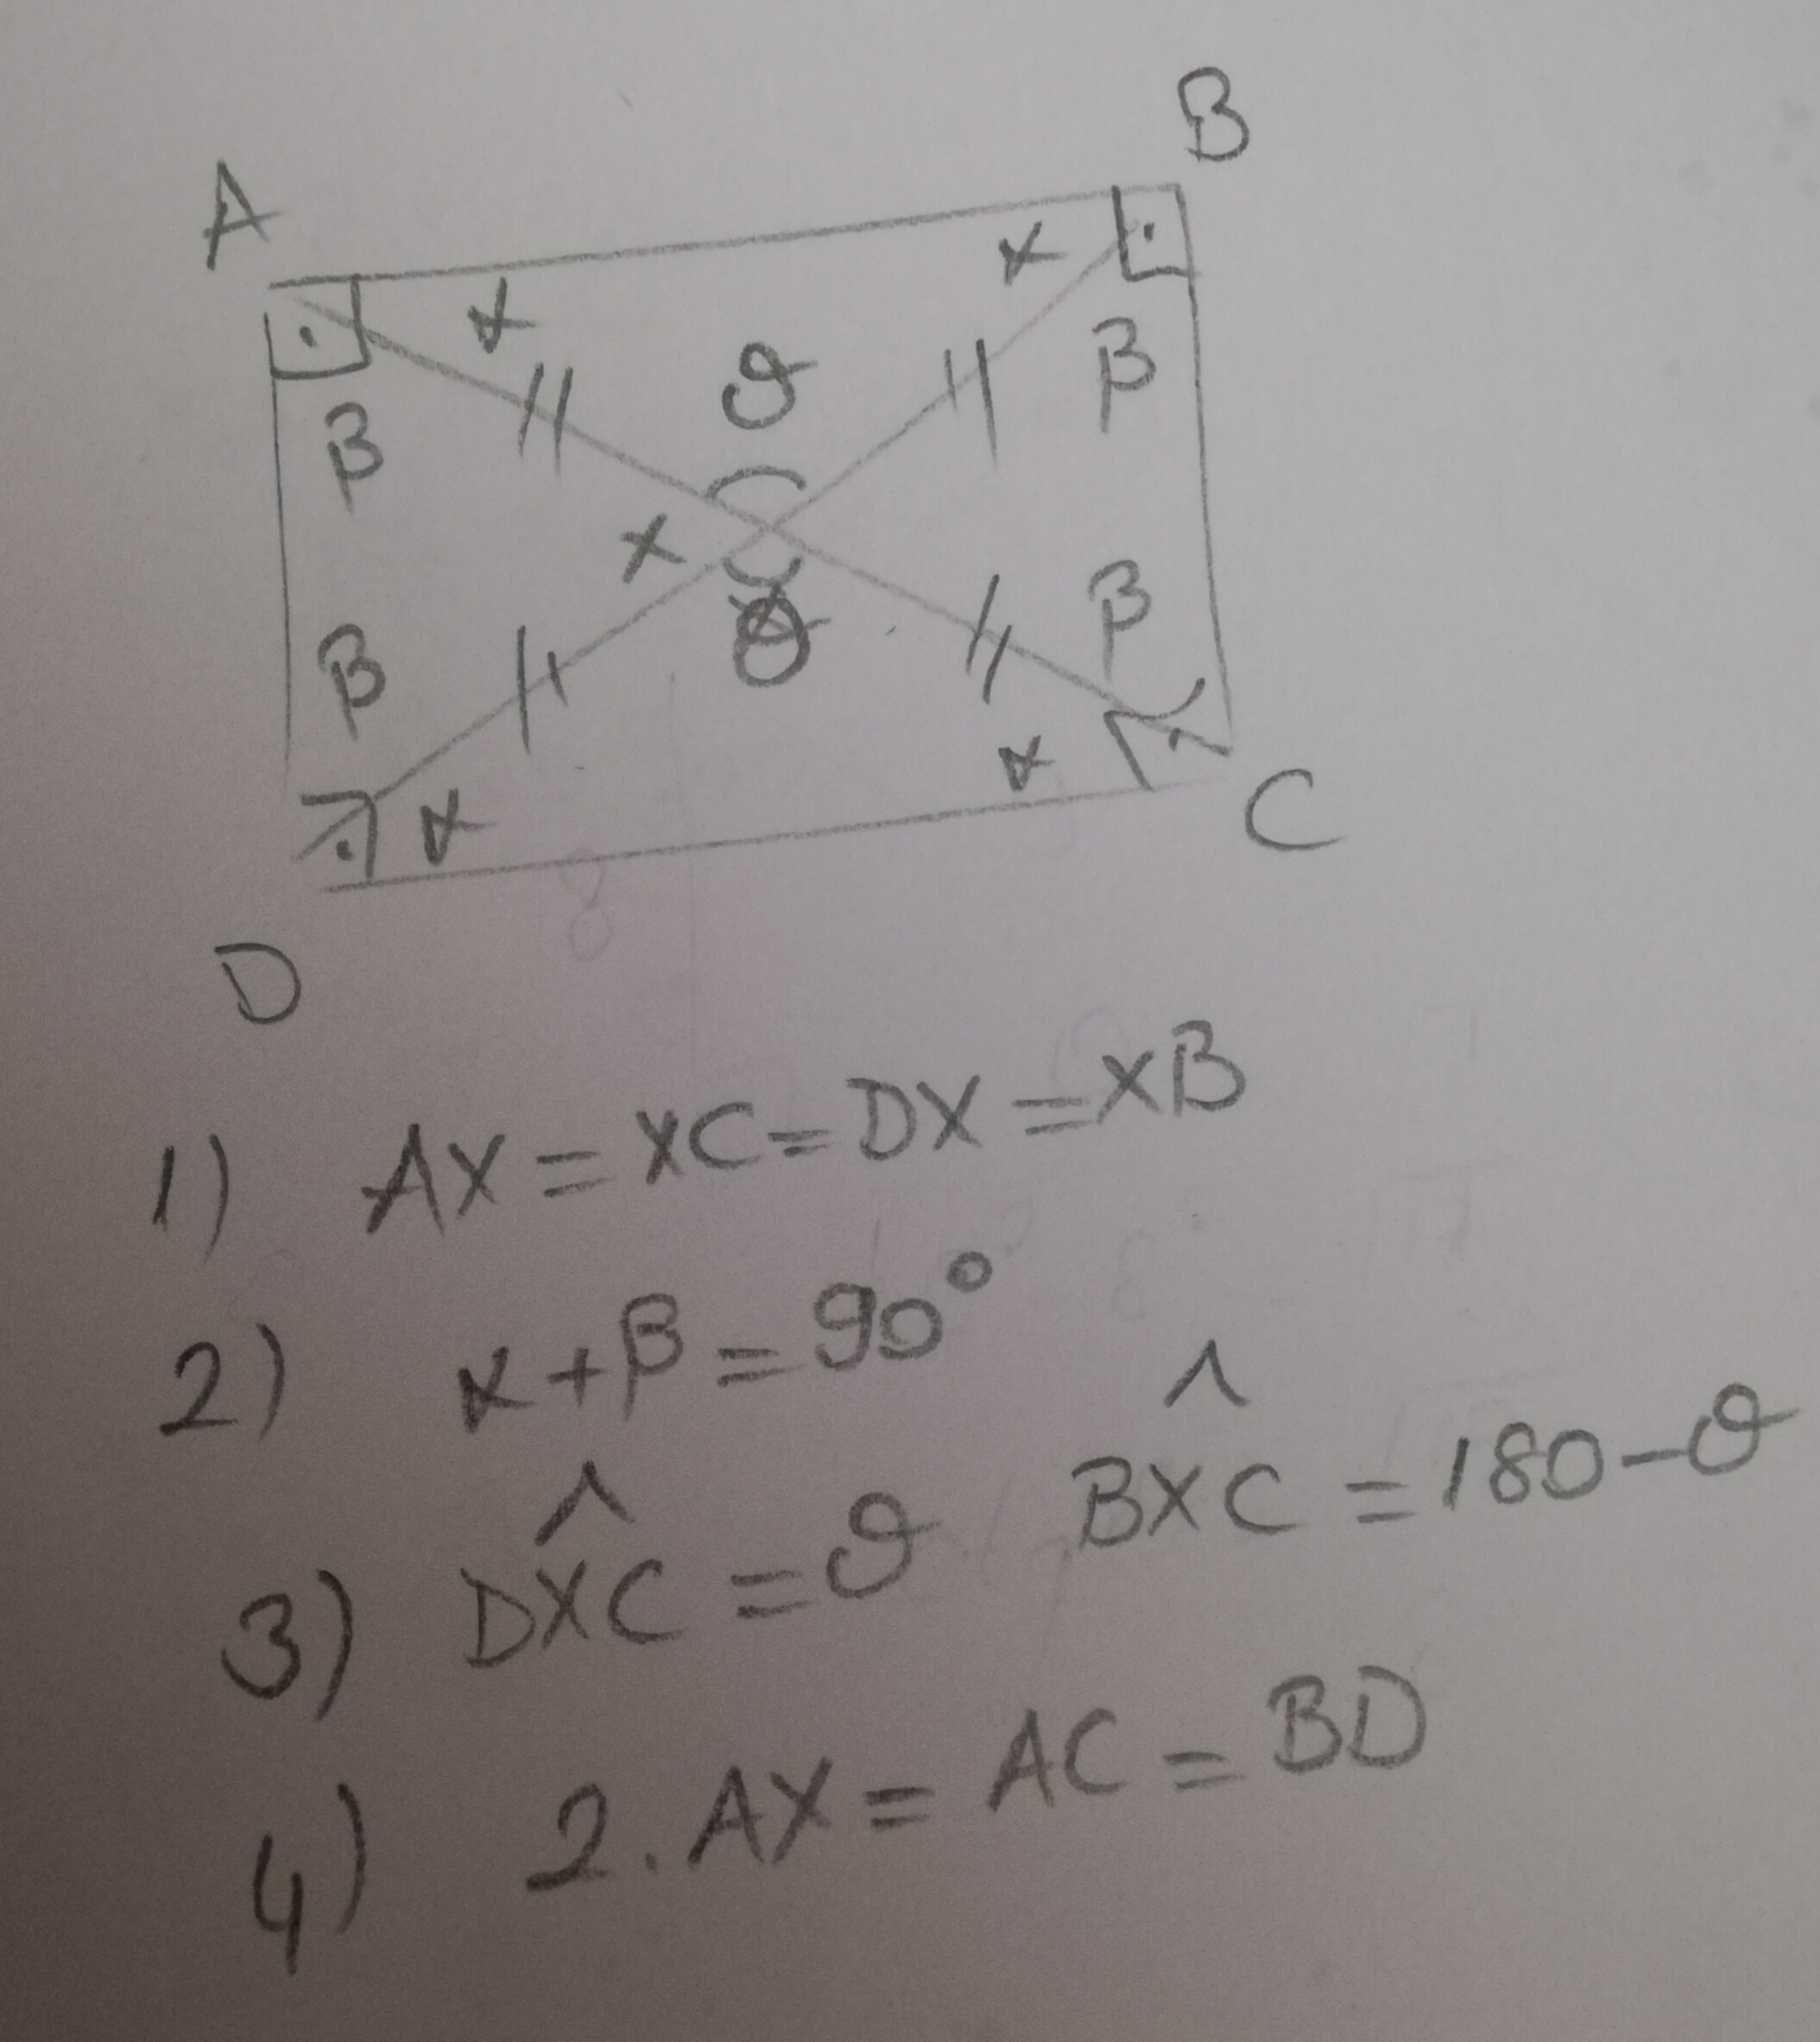 A B
α α
ϑ
β β
X
β β
ϑ
α α
D C
1) AX = XC = DX = XB
2) α + β = 90°
3) DX̂C = ϑ BX̂C = 180 - ϑ
4) 2. AX = AC = BD